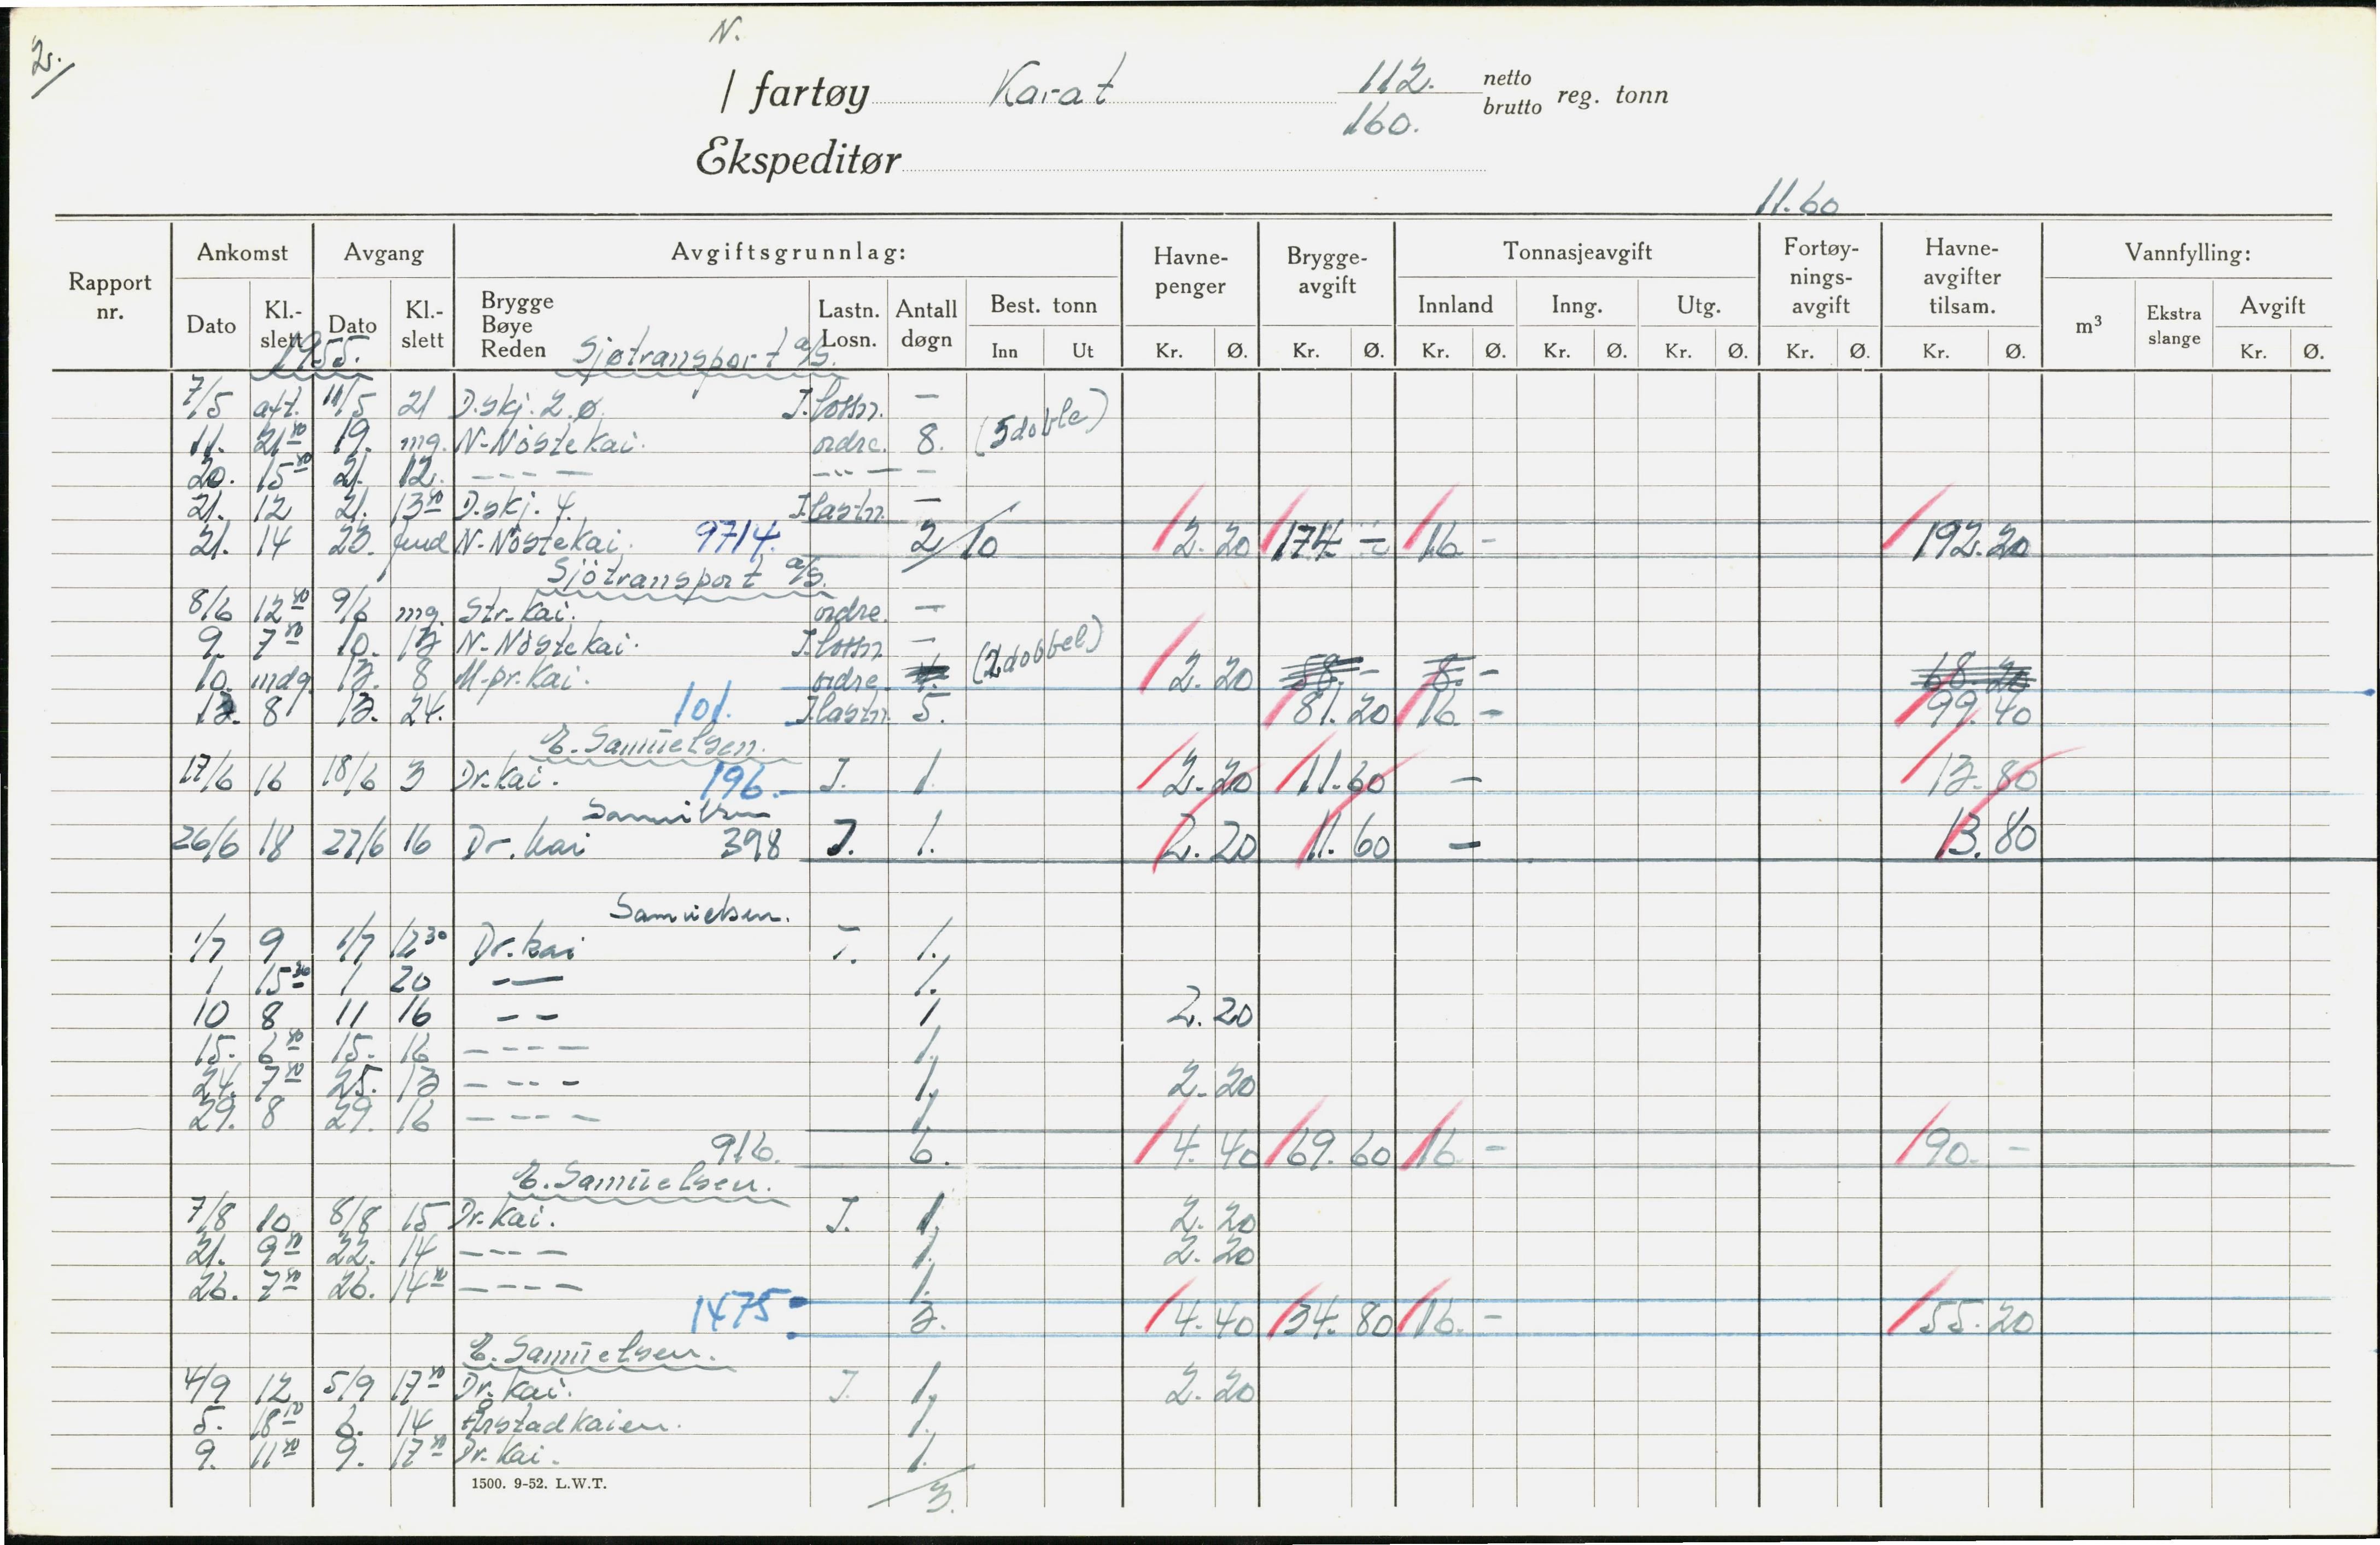 2.
N.
/ fartøy Karat 112. netto
160. brutto reg. tonn
Ekspeditør
11.60
Rapport nr. Ankomst Avgang Avgiftsgrunnlag: Havne-penger Brygge-avgift Tonnasjeavgift Fortøy-nings-avgift Havne-avgifter tilsam. Vannfylling:
Dato Kl.-slett Dato Kl.-slett Brygge Bøye Reden Lastn. Losn. Antall døgn Best. tonn Innland Inng. Utg. m³ Ekstra slange Avgift
Inn Ut Kr. Ø. Kr. Ø. Kr. Ø. Kr. Ø. Kr. Ø. Kr. Ø. Kr. Ø. Kr. Ø.
1955. Sjøtransport a/s.
7/5 aft. 11/5 21 D.skj. 2.ø. I.lossn. —
11. 21 30 19. mg. N-Nöstekai. ordre. 8. (5 doble)
20. 15 30 21. 12. - - - - - - - -
21. 12 21. 13 30 D.skj. 4. I.lastn. —
21. 14 23. N-Nöstekai. 9714. 2/10 2.20 174 - 16 - 192.20
Sjötransport a/s.
8/6 12 30 9/6 mg. Str.kai. ordre. —
9. 7 30 10. 13 N-Nöstekai. I.lossn. — (2 dobbel)
10. mdg. 13. 8 M.pr.kai. ordre. 4. 2.20 58.- 8.- 68.20
13. 8 13. 24. 101. I.lastn. 5. 81.20 16 - 99.40
E. Samuelsen.
17/6 16 18/6 3 Dr.kai. 196. I. 1. 2.20 11.60 - 13.80
Samuelsen
26/6 18 27/6 16 Dr.kai 398 I. 1. 2.20 11.60 - 13.80
Samuelsen.
1/7 9 1/7 12 30 Dr.kai I. 1.
1 15 30 1 20 - — 1.
10 8 11 16 - - 1 2.20
15. 6 30 15. 16 - - - - 1.
24. 7 30 25. 13 - - - - 1. 2.20
29. 8 29. 16 - - - - 1
916. 6. 4.40 69.60 16 - 90.-
E. Samuelsen.
7/8 10 8/8 15 Dr.kai. I. 1. 2.20
21. 9 30 22. 14 - - - - 1. 2.20
26. 7 30 26. 14 30 - - - - 1.
1475 3. 4.40 34.80 16.- 55.20
E. Samuelsen.
4/9 12 5/9 17 30 Dr.kai. I. 1. 2.20
5. 18 30 6. 14 Årstadkaien. 1.
9. 11 30 9. 17 30 Dr.kai. 1.
1500. 9-52. L.W.T. 3.